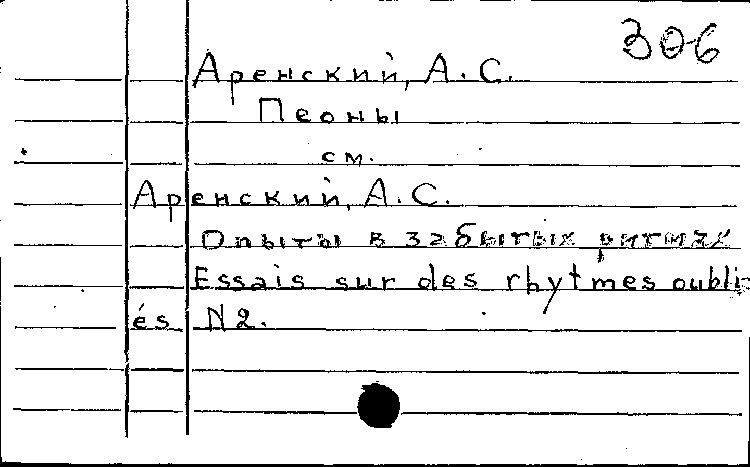 306
Аренский, А. С.
Пеоны
см.
Аренский, А. С.
Опыты в забытых ритмах
Essais sur des rhytmes oubli
és N2.